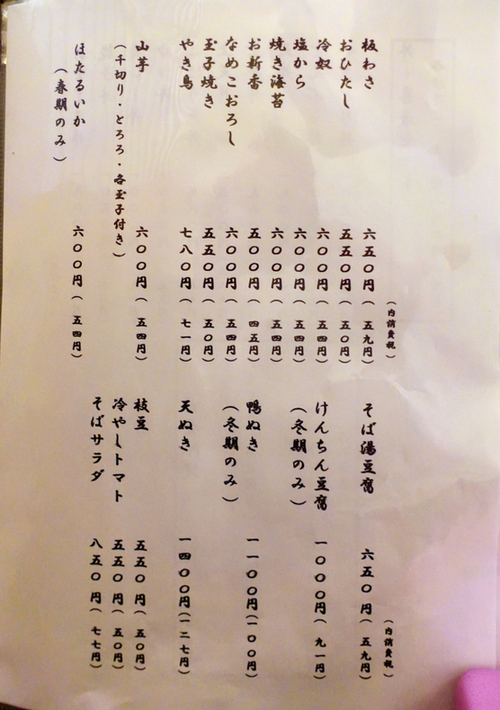 (内消費税)
板わさ 六五〇円(五九円)
おひたし 五五〇円(五〇円)
冷奴 六〇〇円(五四円)
塩から 六〇〇円(五四円)
焼き海苔 六〇〇円(五四円)
お新香 五〇〇円(四五円)
なめこおろし 六〇〇円(五四円)
玉子焼き 五五〇円(五〇円)
やき鳥 七八〇円(七一円)
山芋 六〇〇円(五四円)
(千切り・とろろ・各玉子付き)
ほたるいか 六〇〇円(五四円)
(春期のみ)
(内消費税)
そば湯豆腐 六五〇円(五九円)
けんちん豆腐 一〇〇〇円(九一円)
(冬期のみ)
鴨ぬき 一一〇〇円(一〇〇円)
(冬期のみ)
天ぬき 一四〇〇円(一二七円)
枝豆 五五〇円(五〇円)
冷やしトマト 五五〇円(五〇円)
そばサラダ 八五〇円(七七円)